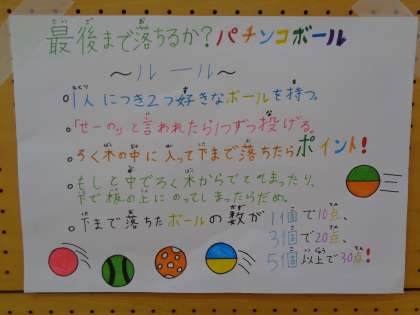 最後まで落ちるか?パチンコボール
～ルール～
。1人につき2つ好きなボールを持つ。
。「せーの」と言われたら1つずつ投げる。
。ろく木の中に入って下まで落ちたらポイント!
。もしと中でろく木からでてしまったり、
下で板の上にのってしまったらだめ。
。下まで落ちたボールの数が
1個で10点、
3個で20点、
5個以上で30点!